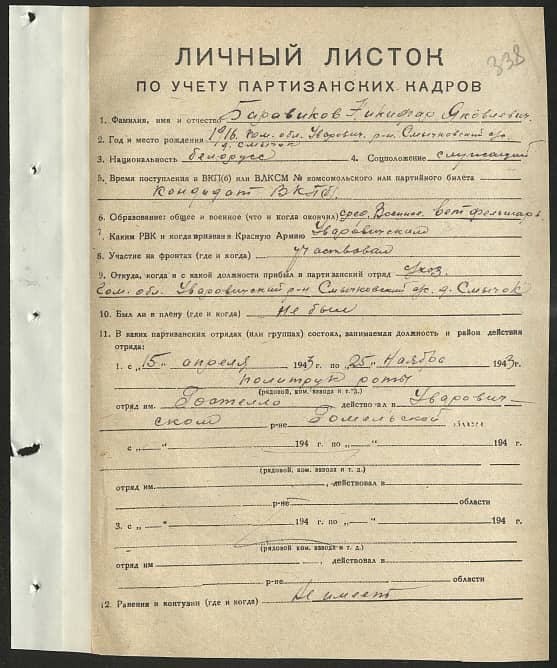 338
ЛИЧНЫЙ ЛИСТОК
ПО УЧЕТУ ПАРТИЗАНСКИХ КАДРОВ
1. Фамилия, имя и отчество Баравиков Никифар Яковлевич
2. Год и место рождения 1916. Гом. обл. Уварович. р-н. Смычковский с/с.
д. Смычок
3. Национальность белорусс 4. Соцположение служащий
5. Время поступления в ВКП(б) или ВЛКСМ № комсомольского или партийного билета
Кондидат ВКПб.
6. Образование: общее и военное (что и когда окончил) сред. Военное. ветфельшар
7. Каким РВК и когда призван в Красную Армию Уваровичским
8. Участие на фронтах (где и когда) участвовал
9. Откуда, когда и с какой должности прибыл в партизанский отряд
Гом. обл. Уваровичский р-н Смычковский с/с. д. Смычок
10. Был ли в плену (где и когда) не был
11. В каких партизанских отрядах (или группах) состоял, занимаемая должность и район действия
отряда:
1. с „15“ апреля 1943 г. по „25“ Ноябвь 1943 г.
политрук роты
(рядовой, ком. взвода и т. г.)
отряд им. Гостелло действовал в Уварович-
ском р-не Гомельской области
с „—“ 194 г. по „—“ 194 г.
(рядовой, ком. взвода и т. д.)
отряд им. , действовал в
р-не области
3. с „—“ 194 г. по „—“ 194 г.
(рядовой ком. взвода и т. д.)
отряд им , действовал в
р-не области
12. Ранения и контузии (где и когда) Не имеет